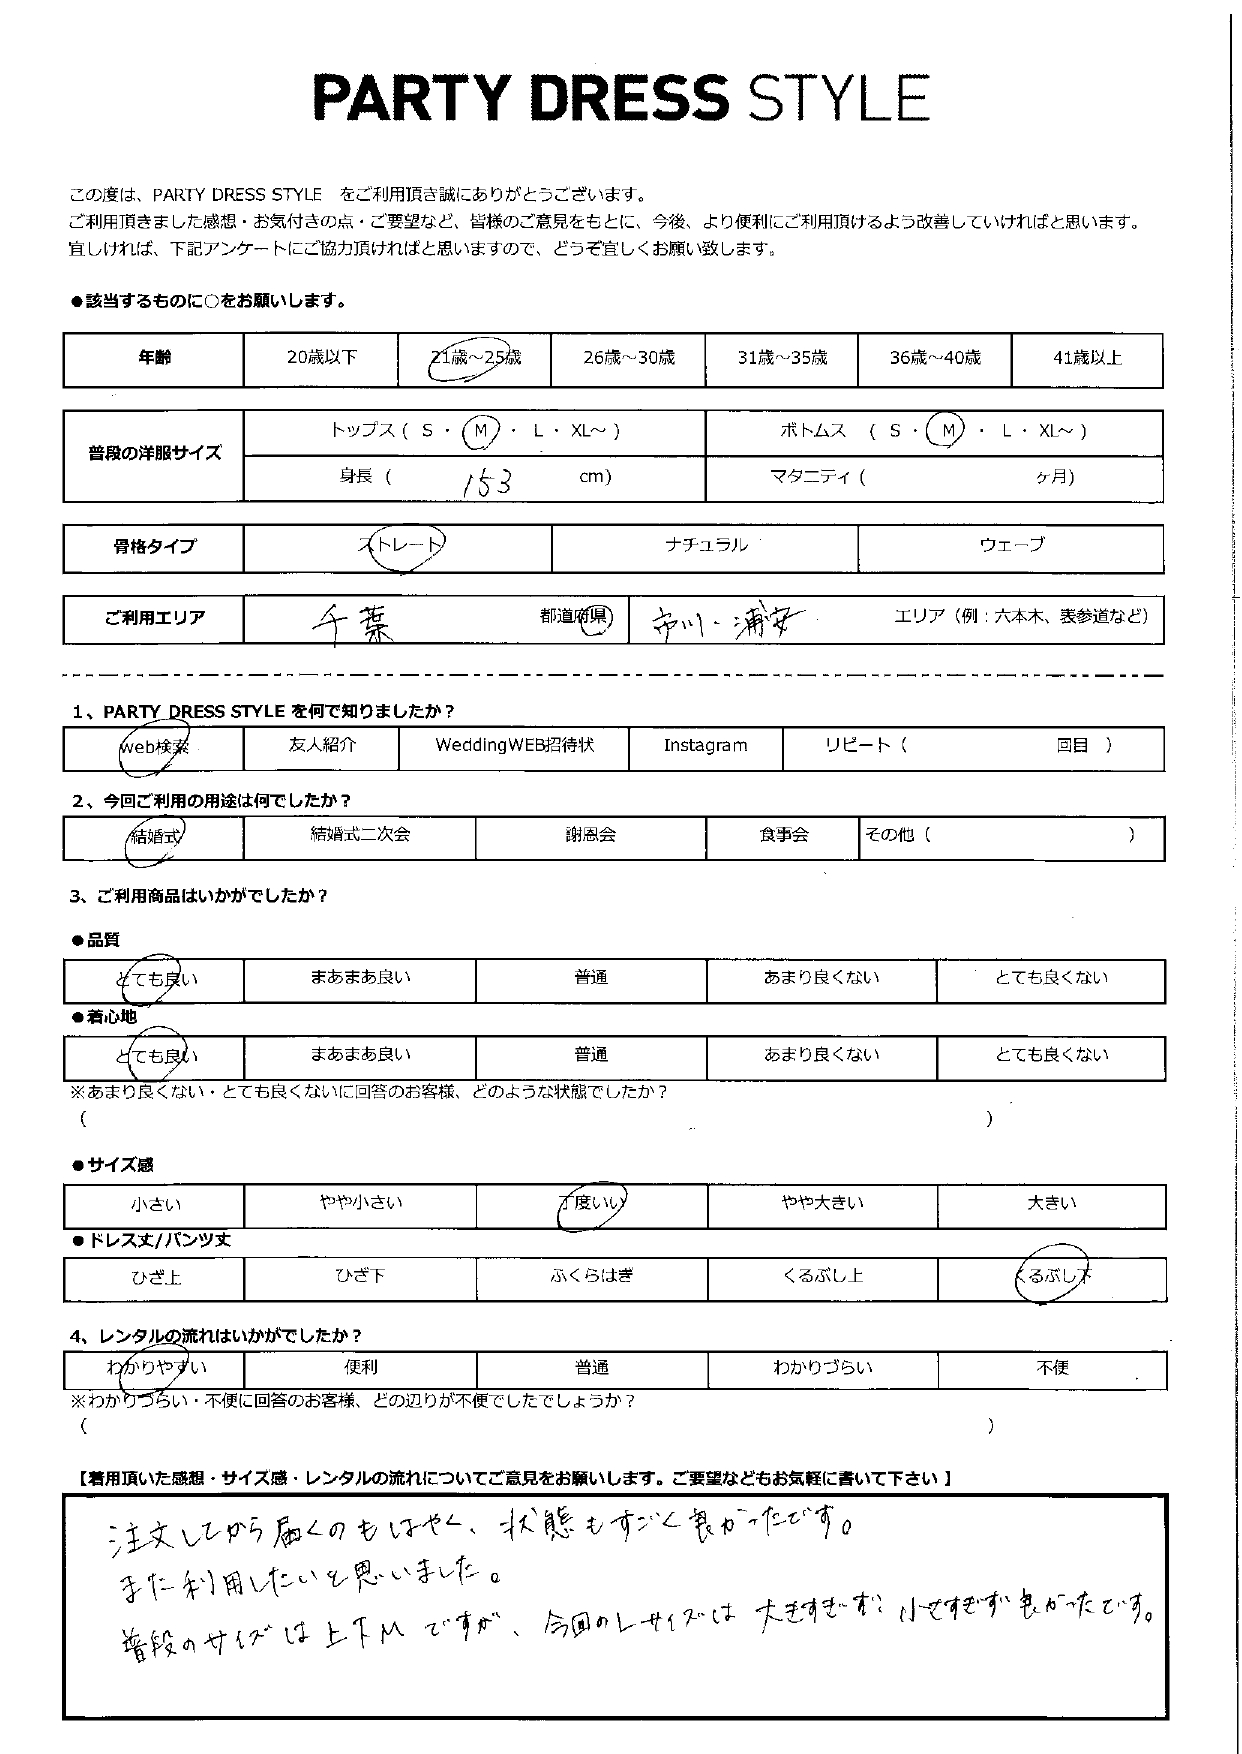 PARTY DRESS STYLE
この度は、PARTY DRESS STYLE をご利用頂き誠にありがとうございます。
ご利用頂きました感想・お気付きの点・ご要望など、皆様のご意見をもとに、今後、より便利にご利用頂けるよう改善していければと思います。
宜しければ、下記アンケートにご協力頂ければと思いますので、どうぞ宜しくお願い致します。
●該当するものに○をお願いします。
年齢 20歳以下 21歳～25歳 26歳～30歳 31歳～35歳 36歳～40歳 41歳以上
普段の洋服サイズ トップス ( S ・ M ・ L ・ XL～ ) ボトムス ( S ・ M ・ L ・ XL～ )
身長 ( 153 cm) マタニティ ( ヶ月)
骨格タイプ ストレート ナチュラル ウェーブ
ご利用エリア 千葉 都道府県 市川・浦安 エリア（例：六本木、表参道など）
1、PARTY DRESS STYLE を何で知りましたか？
web検索 友人紹介 WeddingWEB招待状 Instagram リピート ( 回目 )
2、今回ご利用の用途は何でしたか？
結婚式 結婚式二次会 謝恩会 食事会 その他 ( )
3、ご利用商品はいかがでしたか？
●品質
とても良い まあまあ良い 普通 あまり良くない とても良くない
●着心地
とても良い まあまあ良い 普通 あまり良くない とても良くない
※あまり良くない・とても良くないに回答のお客様、どのような状態でしたか？
( )
●サイズ感
小さい やや小さい 丁度いい やや大きい 大きい
●ドレス丈/パンツ丈
ひざ上 ひざ下 ふくらはぎ くるぶし上 くるぶし下
4、レンタルの流れはいかがでしたか？
わかりやすい 便利 普通 わかりづらい 不便
※わかりづらい・不便に回答のお客様、どの辺りが不便でしたでしょうか？
( )
【着用頂いた感想・サイズ感・レンタルの流れについてご意見をお願いします。ご要望などもお気軽に書いて下さい】
注文してから届くのもはやく、状態もすごく良かったです。
また利用したいと思いました。
普段のサイズは上下Mですが、今回のLサイズは大きすぎず小さすぎず良かったです。